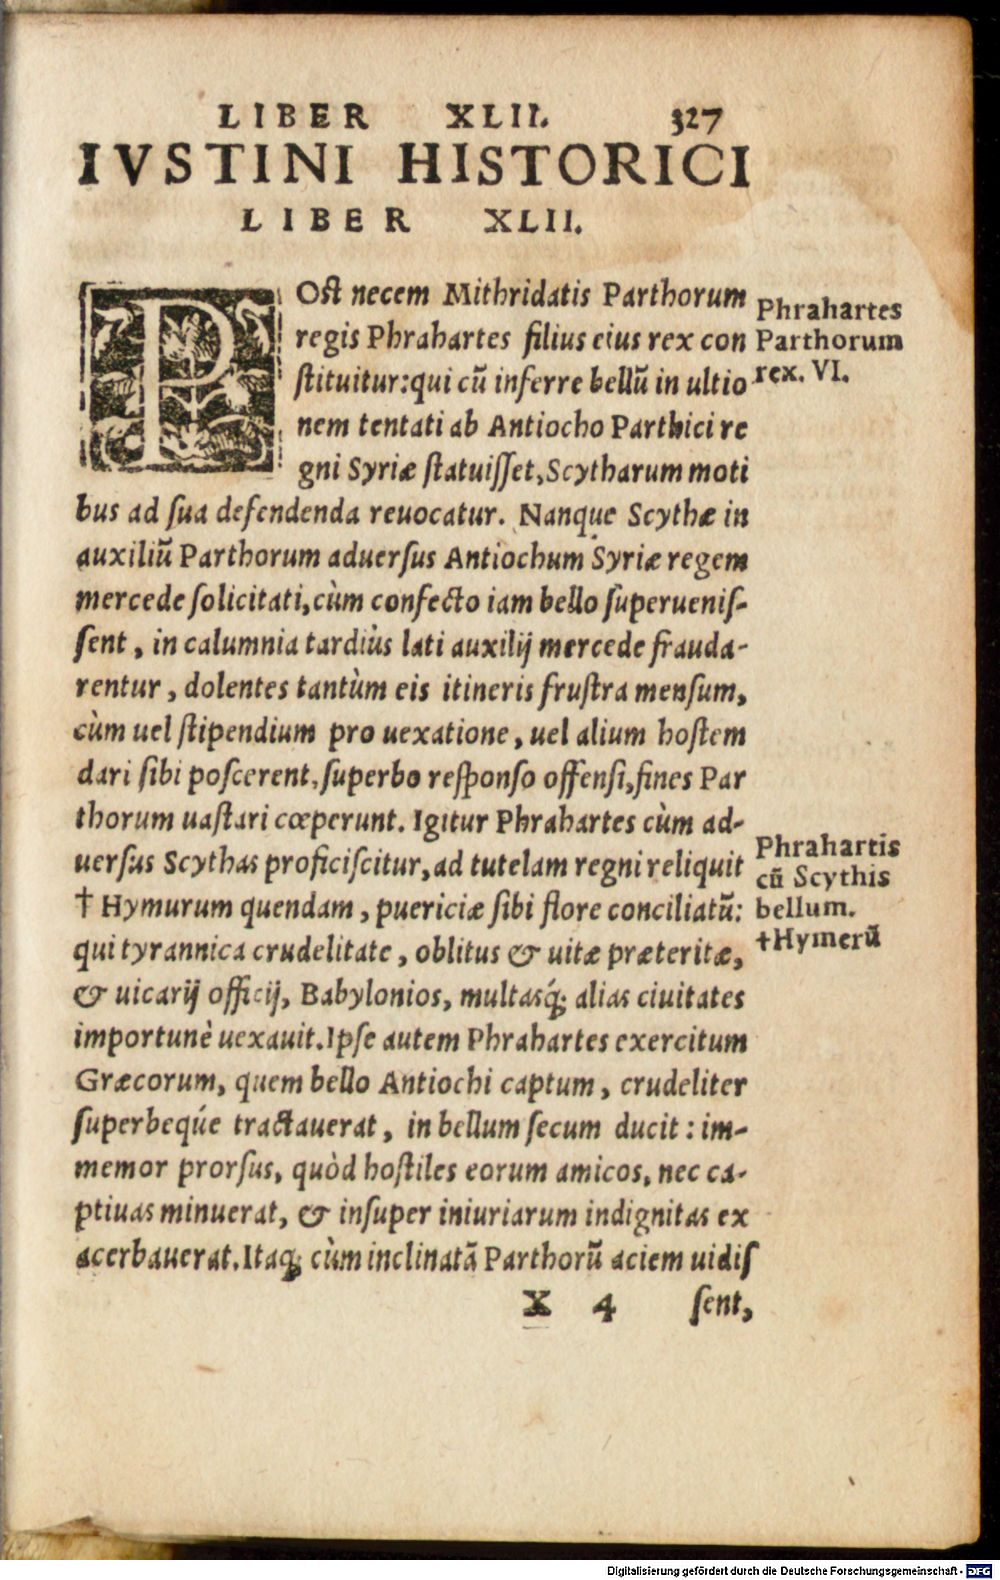 LIBER XLII. 327
IVSTINI HISTORICI
LIBER XLII.
POst necem Mithridatis Parthorum
regis Phrahartes filius eius rex con
stituitur: qui cū inferre bellū in ultio
nem tentati ab Antiocho Parthici re
gni Syriæ statuisset, Scytharum moti
bus ad sua defendenda reuocatur. Nanque Scythæ in
auxiliū Parthorum aduersus Antiochum Syriæ regem
mercede solicitati, cùm confecto iam bello superuenis-
sent, in calumnia tardiùs lati auxilij mercede frauda-
rentur, dolentes tantùm eis itineris frustra mensum,
cùm uel stipendium pro uexatione, uel alium hostem
dari sibi poscerent, superbo responso offensi, fines Par
thorum uastari cœperunt. Igitur Phrahartes cùm ad-
uersus Scythas proficiscitur, ad tutelam regni reliquit
† Hymurum quendam, puericiæ sibi flore conciliatū:
qui tyrannica crudelitate, oblitus & uitæ præteritæ,
& uicarij officij, Babylonios, multasq́; alias ciuitates
importunè uexauit. Ipse autem Phrahartes exercitum
Græcorum, quem bello Antiochi captum, crudeliter
superbeqúe tractauerat, in bellum secum ducit: im-
memor prorsus, quòd hostiles eorum amicos, nec ca-
ptiuas minuerat, & insuper iniuriarum indignitas ex
acerbauerat. Itaq; cùm inclinatā Parthorū aciem uidis
X 4 sent,
Phrahartes
Parthorum
rex. VI.
Phrahartis
cū Scythis
bellum.
†Hymerū
Digitalisierung gefördert durch die Deutsche Forschungsgemeinschaft - DFG